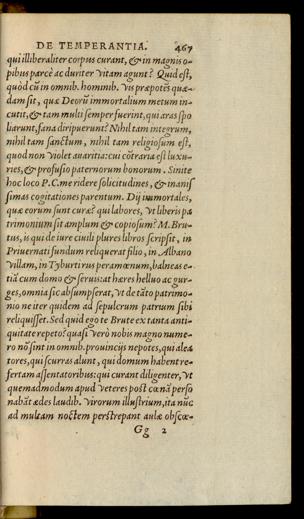 DE TEMPERANTIA. 467
qui illiberaliter corpus curant, & in magnis o-
pibus parcè ac duriter vitam agunt? Quid est,
quòd cū in omnib. hominib. vis præpotēs quæ-
dam sit, quæ Deorū immortalium metum in-
cutit, & tam multi semper fuerint, qui aras spo
liarunt, fana diripuerunt? Nihil tam integrum,
nihil tam sanctum, nihil tam religiosum est,
quod non violet auaritia: cui cōtraria est luxu-
ries, & profusio paternorum bonorum. Sinite
hoc loco P.C. me ridere solicitudines, & inanis
simas cogitationes parentum. Dij immortales,
quæ eorum sunt curæ? qui labores, vt liberis pa
trimonium sit amplum & copiosum? M. Bru-
tus, is qui de iure ciuili plures libros scripsit, in
Priuernati fundum reliquerat filio, in Albano
villam, in Tyburti rus peramœnum, balneas e-
tiā cum domo & seruis: at hæres helluo ac gur-
ges, omnia sic absumpserat, vt de tāto patrimo-
nio ne iter quidem ad sepulcrum patrum sibi
reliquisset. Sed quid ego te Brute ex tanta anti-
quitate repeto? quasi verò nobis magno nume-
ro nō sint in omnib. prouincijs nepotes, qui alea
tores, qui scurras alunt, qui domum habent re-
fertam assentatoribus: qui curant diligenter, vt
quemadmodum apud veteres post cœnā perso
nabāt ædes laudib. virorum illustrium, ita nūc
ad multam noctem perstrepant aulæ obscœ-
Gg 2